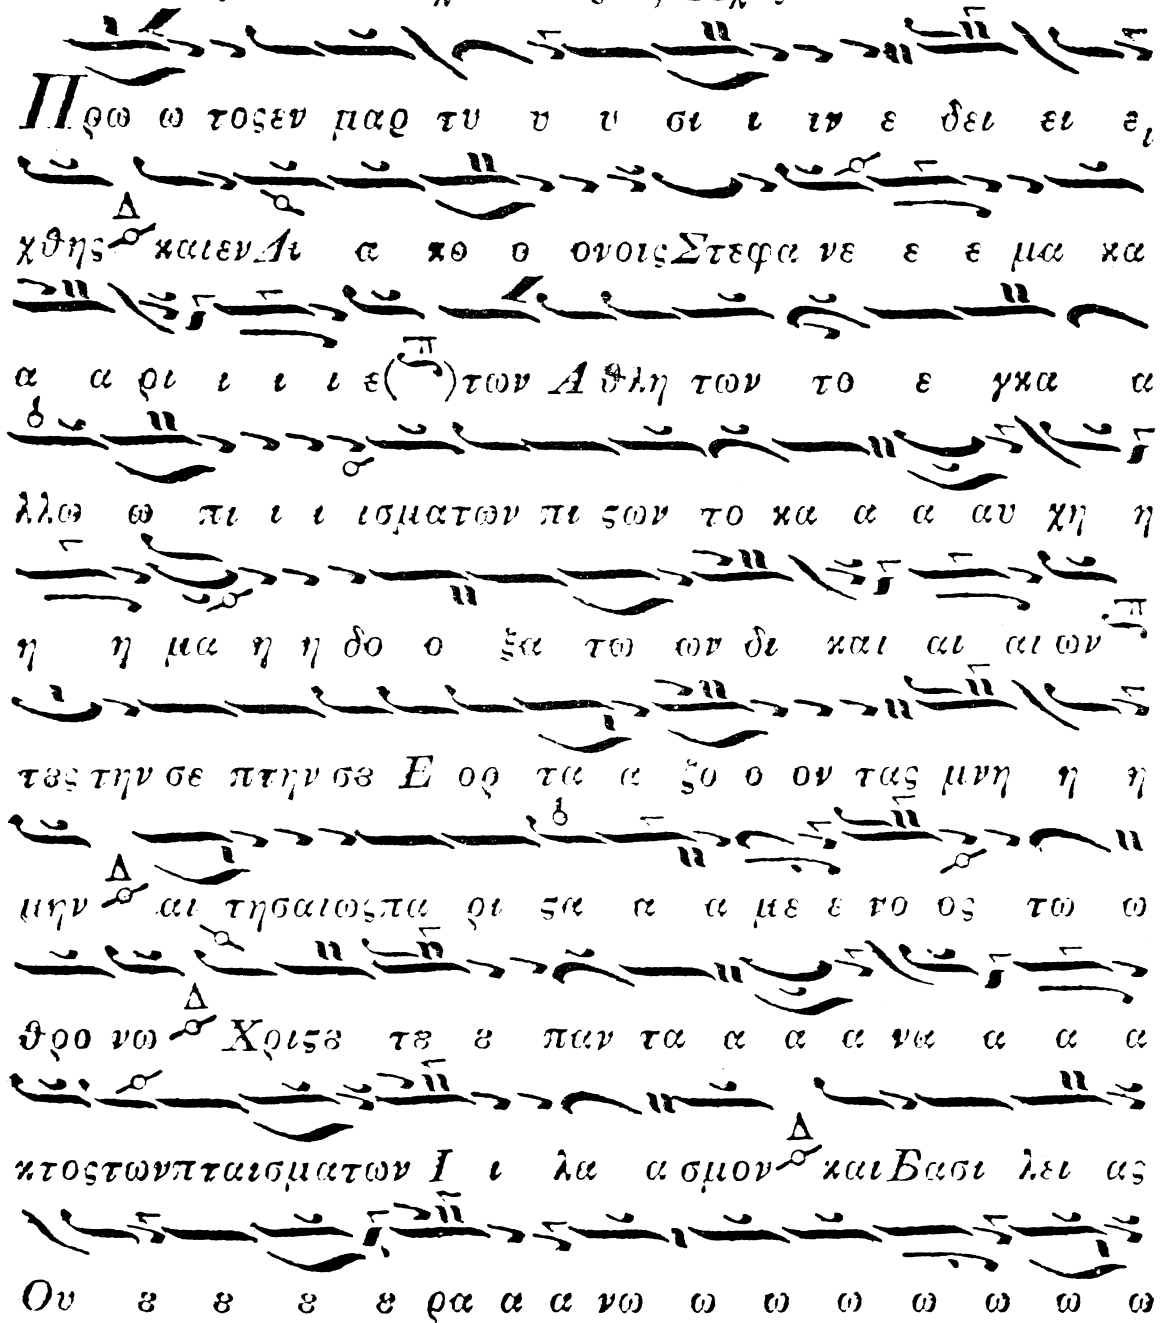 Πρω ω τοςεν μαρ τυ υ υ σι ι ιν ε δει ει ει
χθης Δ καιενΔι α κȣ ȣ ονοις Στεφα νε ε ε μα κα
α α ρι ι ι ι ε(π)των Α θλη των το ε γκα α
λλω ω πι ι ι ισματων πι ςων το κα α α αυ χη η
η η μα η η δο ο ξα τω ων δι και αι αι ων π
τȣς την σε πτην σȣ Ε ορ τα α ζο ο ον τας μνη η η
μην Δ αι τησαιωςπα ρι ςα α α με ε νο ος τω ω
θρο νω Δ Χριςȣ τȣ ȣ παν τα α α α να α α α
κτοςτωνπταισματων Ι ι λα α σμον Δ και Βασι λει ας
Ου ȣ ȣ ȣ ȣ ρα α α νω ω ω ω ω ω ω ω